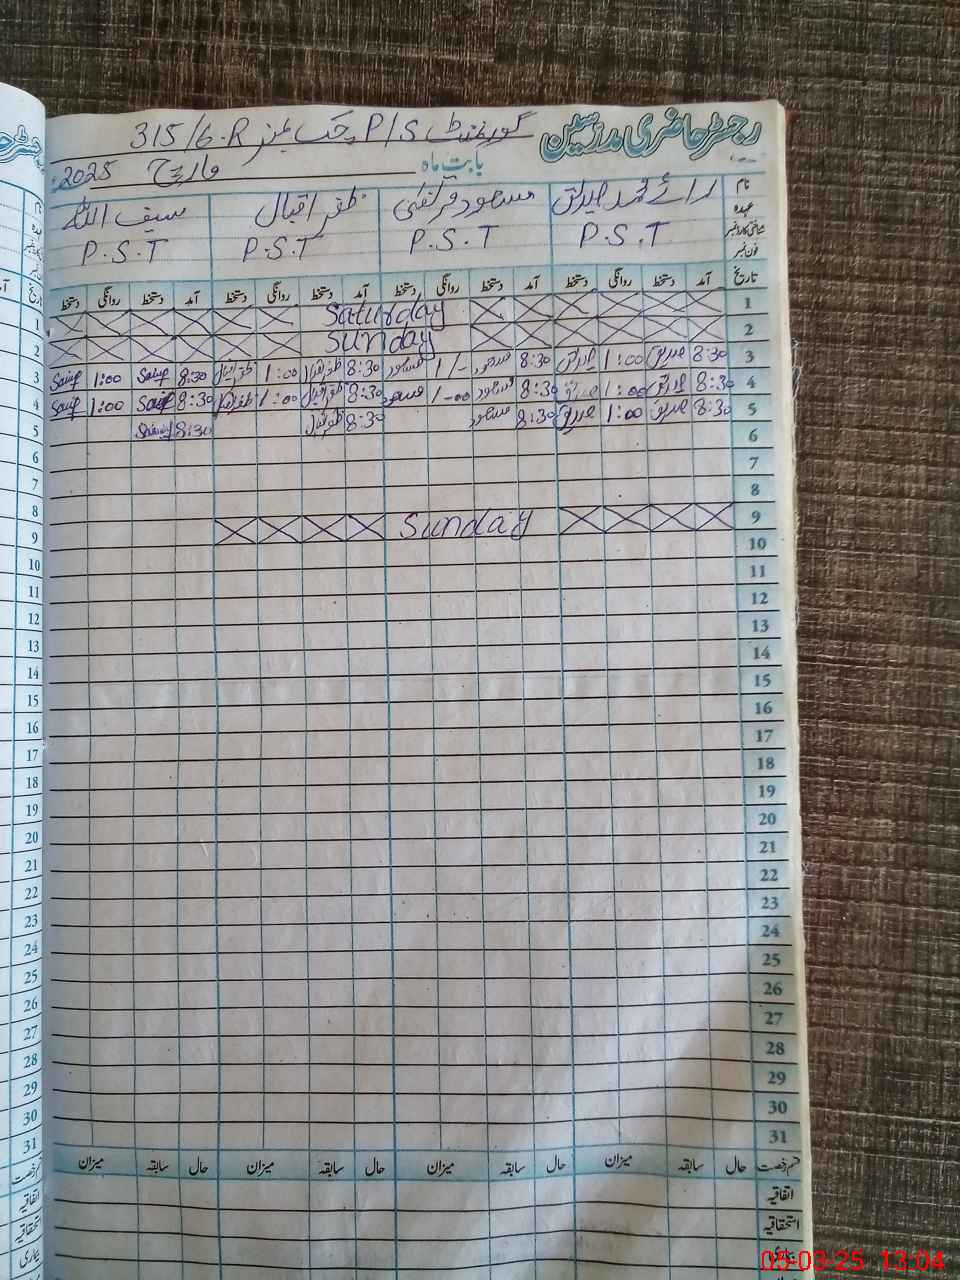 رجسٹر حاضری مدرسین
گورنمنٹ P/S چک نمبر 315/6.R
بابت ماہ مارچ 2025
نام
عہدہ
شناختی کارڈ نمبر
فون نمبر
رائے محمد صدیق مسعود مرتضیٰ ظفر اقبال سیف اللہ
P.S.T P.S.T P.S.T P.S.T
تاریخ آمد دستخط روانگی دستخط آمد دستخط روانگی دستخط آمد دستخط روانگی دستخط آمد دستخط روانگی دستخط
1 Saturday
2 Sunday
3 8:30 صدیق 1:00 صدیق 8:30 مسعود 1/- مسعود 8:30 ظفر اقبال 1:00 ظفر اقبال 8:30 Saif 1:00 Saif
4 8:30 صدیق 1:00 صدیق 8:30 مسعود 1-00 مسعود 8:30 ظفر اقبال 1:00 ظفر اقبال 8:30 Saif 1:00 Saif
5 8:30 صدیق 1:00 صدیق 8:30 مسعود 8:30 ظفر اقبال 8:30
6
7
8
9 Sunday
10
11
12
13
14
15
16
17
18
19
20
21
22
23
24
25
26
27
28
29
30
31
قسم رخصت حال سابقہ میزان حال سابقہ میزان حال سابقہ میزان حال سابقہ میزان
اتفاقیہ
استحقاقیہ
بیماری
05-03-25 13:04